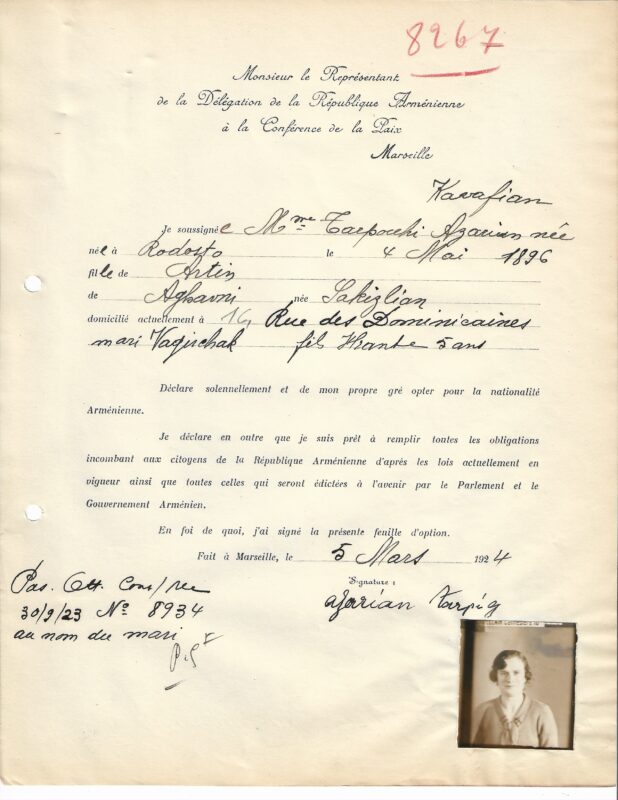 8267
Monsieur le Représentant
de la Délégation de la République Arménienne
à la Conférence de la Paix
Marseille
Kavafian
Je soussignée Mme Azarian née
née à Rodosto le 4 Mai 1896
fille de Artin
de Aghavni née Sakizlian
domicilié actuellement à 16, Rue des Dominicaines
mari Vagirchak fils Hrante 5 ans
Déclare solennellement et de mon propre gré opter pour la nationalité
Arménienne.
Je déclare en outre que je suis prêt à remplir toutes les obligations
incombant aux citoyens de la République Arménienne d'après les lois actuellement en
vigueur ainsi que toutes celles qui seront édictées à l'avenir par le Parlement et le
Gouvernement Arménien.
En foi de quoi, j'ai signé la présente feuille d'option.
Fait à Marseille, le 5 Mars 1924
Signature :
azarian
Pas. Ott.
30/9/23 No 8934
au nom du mari